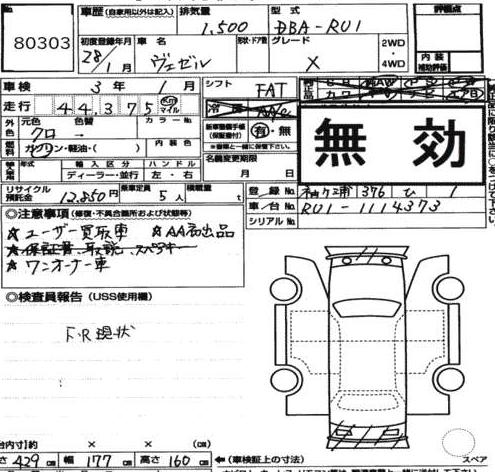 No.
80303
車歴 (自家用以外は記入) 排気量 1,500 型式 DBA-RU1 評価点
初度登録年月 28/1月 車名 ヴェゼル 形状・ドア数 グレード X 2WD・4WD
内装補助評価
車検 3年1月 シフト FAT
走行 44,375 マイル 冷房
外色 元色 色替 カラーNo.
クロー 内装色
新車整備手帳(保証書付) 有・無
※書欄と一緒に保管下さい。
燃料 ガソリン・軽油・( )
名義変更期限
月 日
輸入車 輸入区分 ハンドル
ディーラー・並行 左・右
無効
リサイクル預託金 12,850円 乗車定員 5人 積載量 t
登録No. 袖ヶ浦 376 ひ 1
車台No. RU1-1114373
シリアルNo.
◎注意事項 (修復・不具合箇所および状態等)
☆ユーザー買取車 ☆AA初出品
☆保証書、取説、スペアキー
☆ワンオーナー車
◎検査員報告 (USS使用欄)
F・R現状
台内寸)約 × × (cm)
さ 429 cm 幅 177 cm 高さ 160 cm ←(車検証上の寸法)
スペア